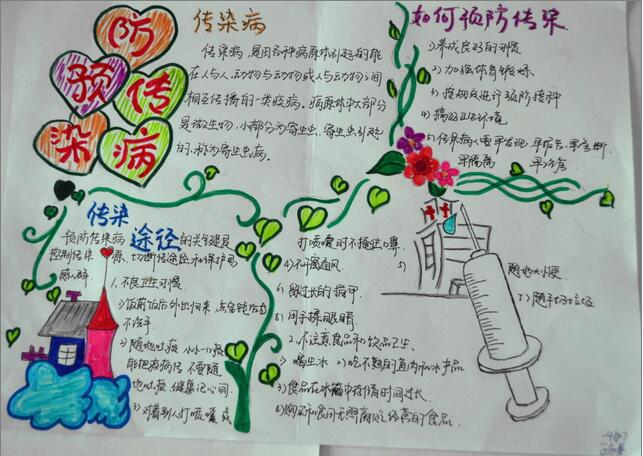 防
预
传
染
病
传染病
传染病,是由各种病原体引起的能
在人与人、动物与动物或人与动物之间
相互传播的一类疾病。病原体中大部分
是微生物,小部分为寄生虫,寄生虫引起
的,称为寄生虫病。
如何预防传染
1)养成良好的习惯
2)加强体育锻炼
3)按规定进行预防接种
4)搞好卫生环境
5)传染病人要早发现,早报告,早诊断,
早隔离 早治疗
传染
途径
预防传染病 的关键是
控制传染源、切断传染途径和保护易
感人群
1.不良卫生习惯
1)饭前饭后外出归来,点金钱后
不洗手
2)随地吐痰 小小口痰
能把疫病传 不要随
地吐痰 健康记心间.
3)对着别人打咳嗽或
打喷嚏时不掩住口鼻
4)不通风
5)
随地大小便
6)留过长的指甲
7)随手扔垃圾
8)用手揉眼睛
2.不注意食品和饮品卫生.
1)喝生水 2)吃不熟的鱼肉和水产品
3)食品在冰箱中存储时间过长.
4)购买 食用无照商贩经营的食品.